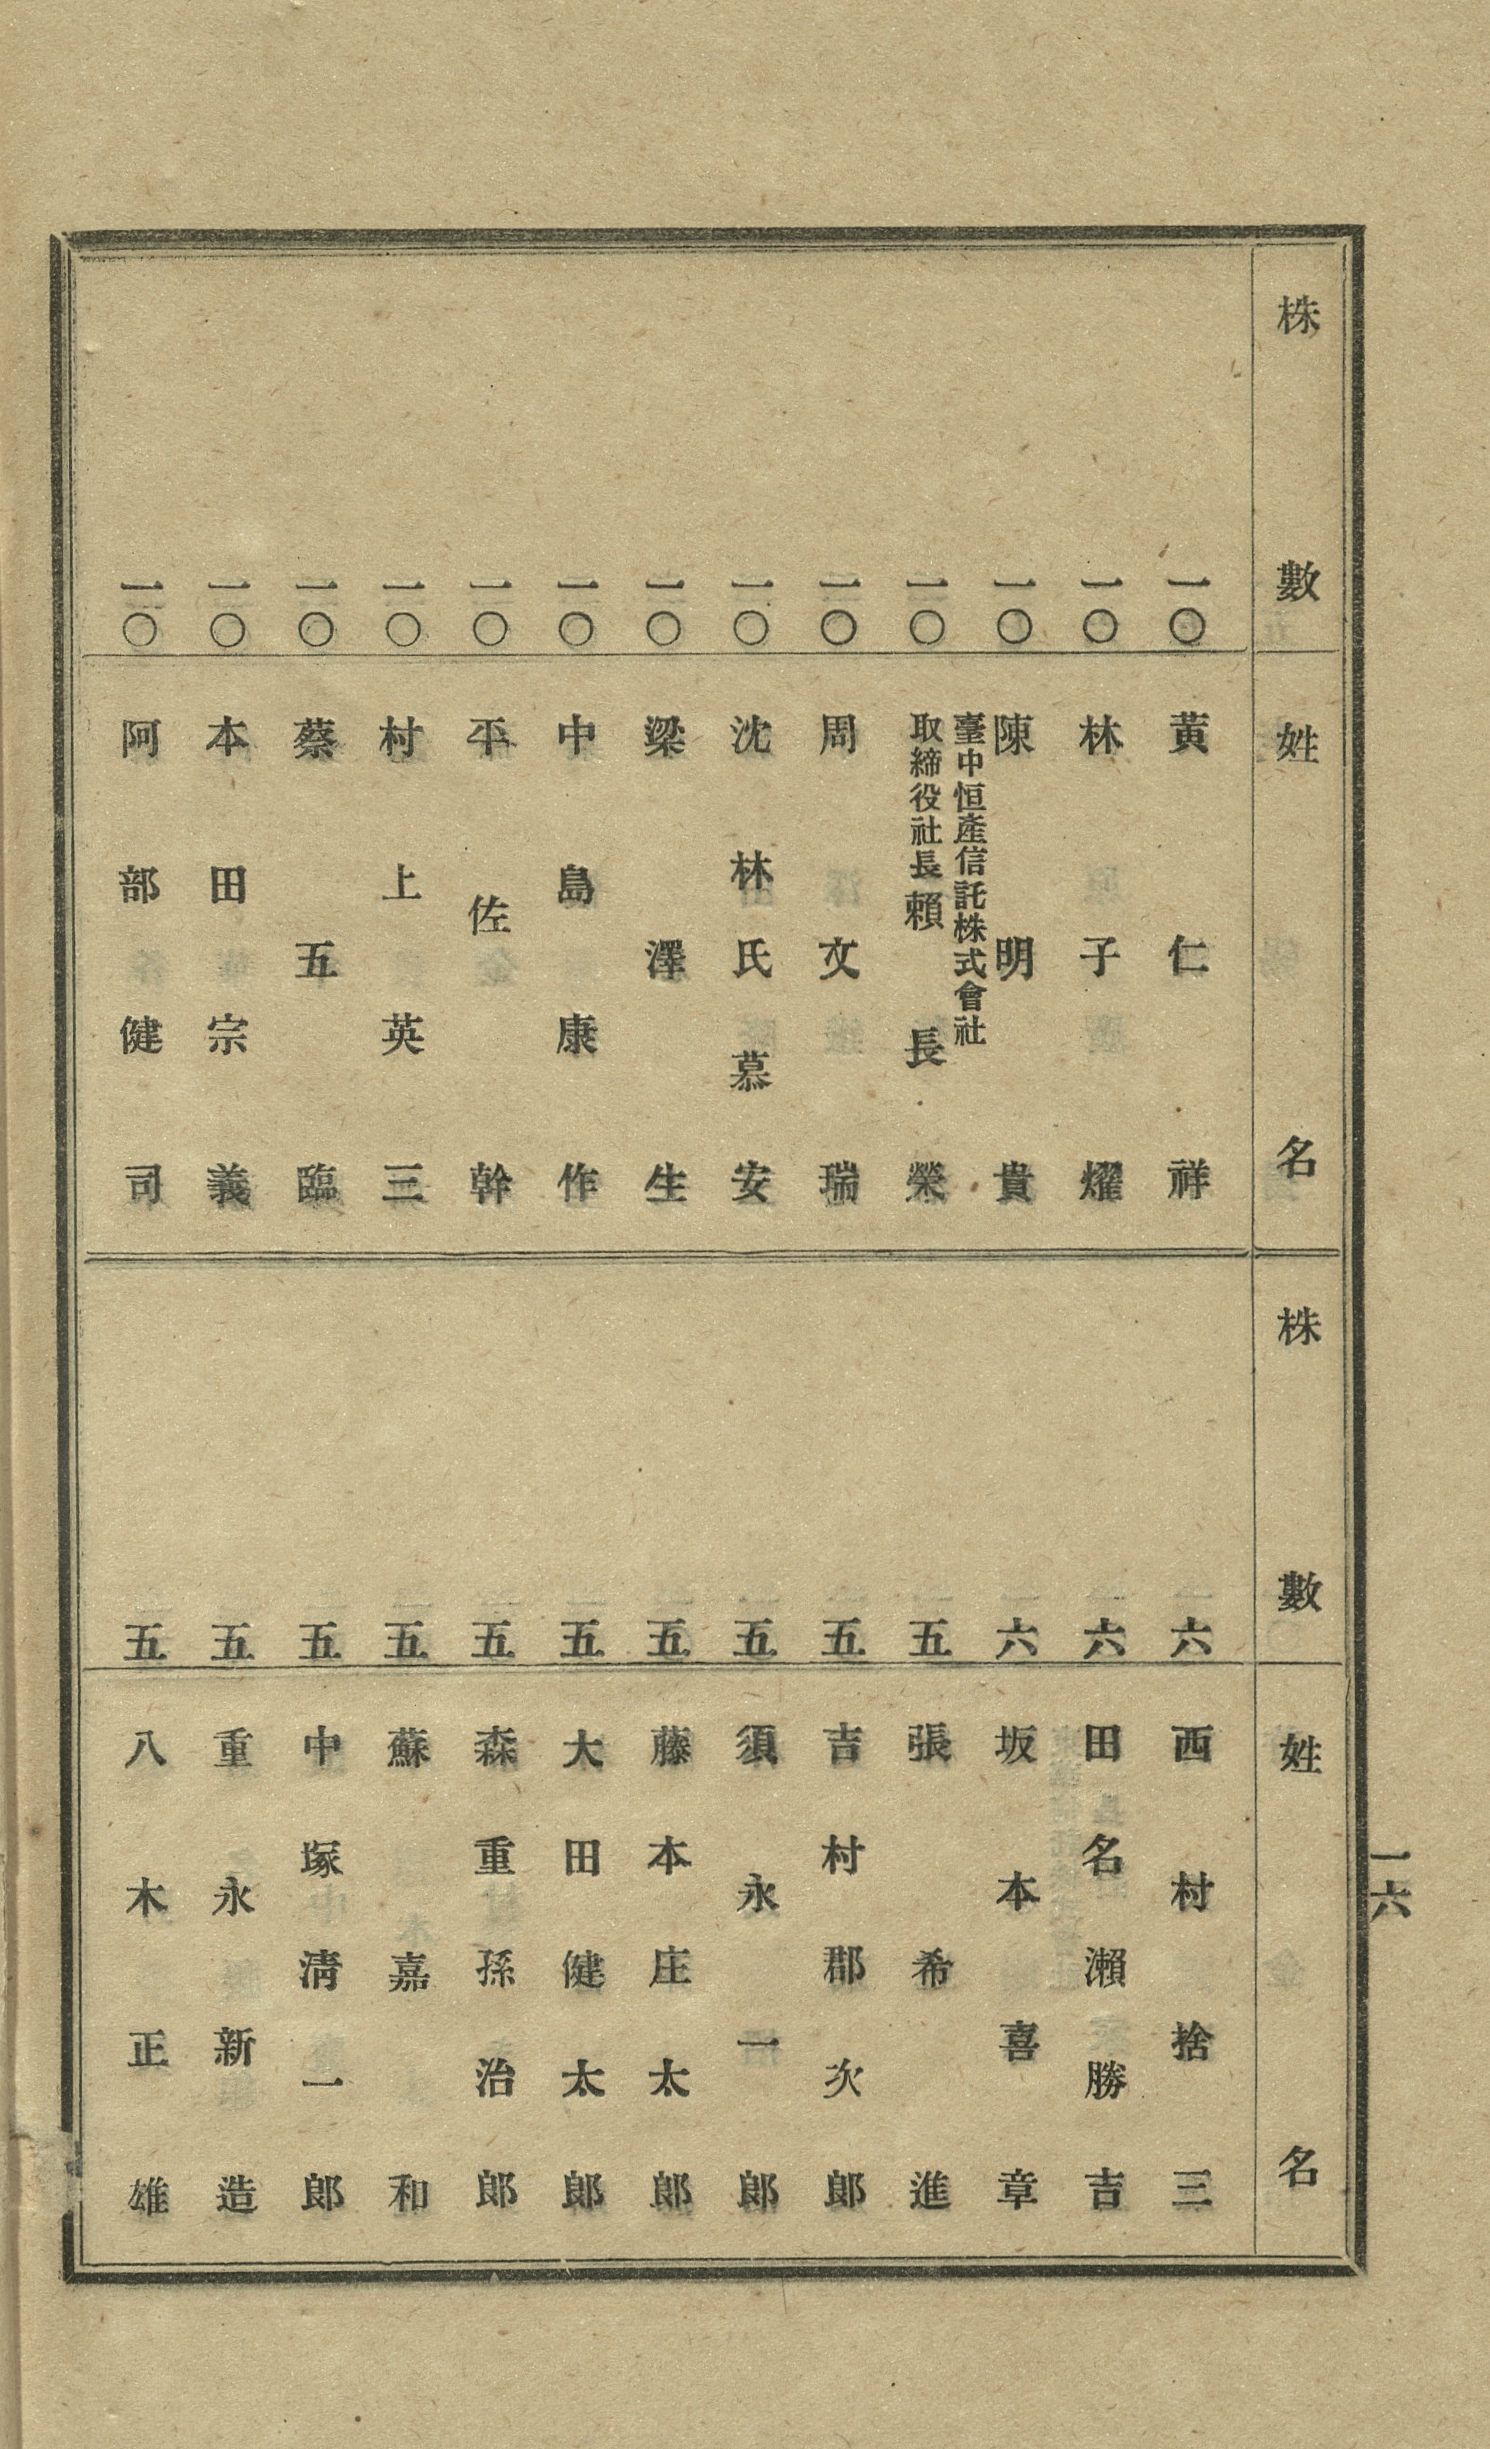 株數 姓名
一〇 黃仁祥
一〇 林子燿
一〇 陳明貴
臺中恒產信託株式會社
一〇 取締役社長賴長榮
一〇 周文瑞
一〇 沈林氏慕安
一〇 梁澤生
一〇 中島康作
一〇 平佐幹
一〇 村上英三
一〇 蔡五臨
一〇 本田宗義
一〇 阿部健司
株數 姓名
六 西村捨三
六 田名瀨勝吉
六 坂本喜章
五 張希進
五 吉村郡次郎
五 須永一郎
五 藤本庄太郎
五 大田健太郎
五 森重孫治郎
五 蘇嘉和
五 中塚淸一郎
五 重永新造
五 八木正雄
一六